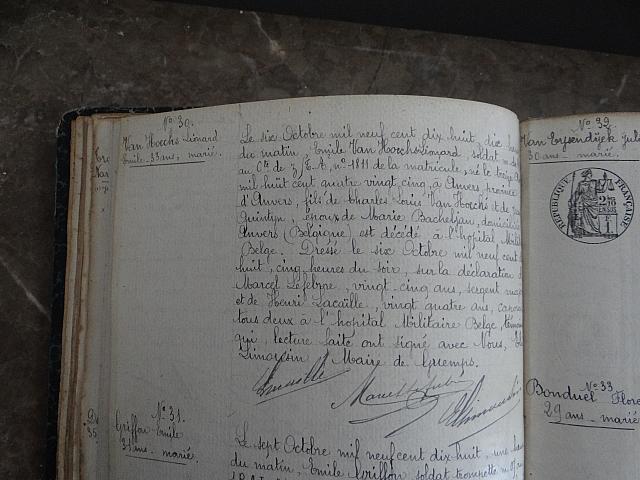 N° 30.
Van Hoecke Lienard
Emile. 33 ans, marié.
Le six Octobre mil neuf cent dix huit, dix
du matin, Emile Van Hoecke Lienard, soldat
au C.te de 3 E.A, n° 1811 de la matricule, né le
mil huit cent quatre vingt cinq, à Anvers, province
d'Anvers, fils de Charles Louis Van Hoecke et de
Quintyn, époux de Marie Bacheljau, domicilié
Anvers (Belgique) est décédé à l'hôpital Milit
Belge. Dressé le six Octobre mil neuf cent
huit, cinq heures du soir, sur la déclaration
Marcel Lefebvre, vingt cinq ans, sergent
et de Henri Lacaille, vingt quatre ans,
tous deux à l'hôpital Militaire Belge, témoins
qui, lecture faite ont signé avec Nous,
Limousin Maire de
N° 31.
Griffon Emile
31 ans. marié.
Le sept Octobre mil neuf cent dix huit, une
du matin, Emile Griffon, soldat trompette
N° 32
Van Eysendijck Jul
30 ans. marié.
RÉPUBLIQUE FRANÇAISE
N° 33
Bonduel Flore
29 ans. marié